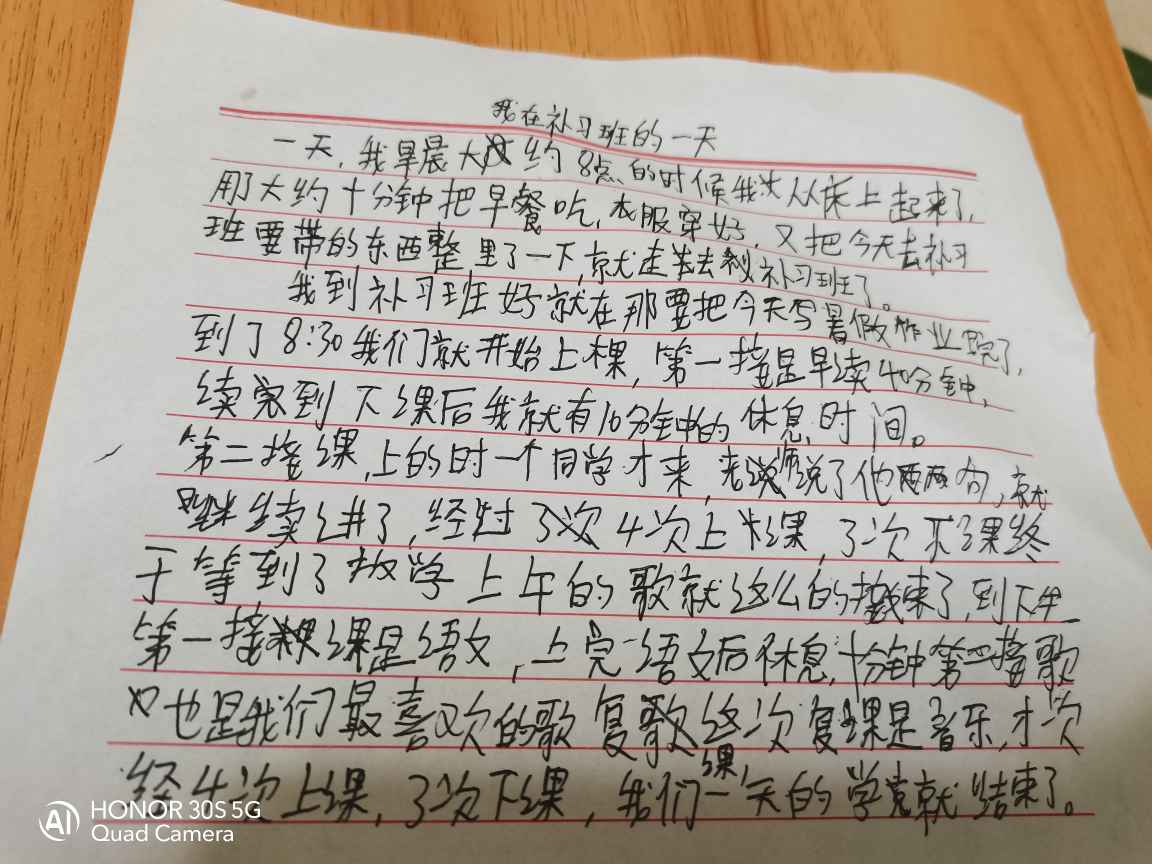 我在补习班的一天
一天,我早晨大约8点的时候我从床上起来了,
用大约十分钟把早餐吃,衣服穿好,又把今天去补习
班要带的东西整里了一下,就走去补习班了。
我到补习班好就在那要把今天写暑假作业完了,
到了8:30我们就开始上课,第一接是早读40分钟,
读完到下课后我就有10分钟的休息时间。
第二接课,上的时一个同学才来,老师说了他两句,就
继续讲了,经过4次上课,3次下课终
于等到了放学上午的歌就这么的结束了,到下午
第一接课是语文,上完语文后休息十分钟第二接歌
也是我们最喜欢的歌复歌这次复课是音乐,才一次
经4次上课,3次下课,我们一天的学竟就结束了。
HONOR 30S 5G
Quad Camera